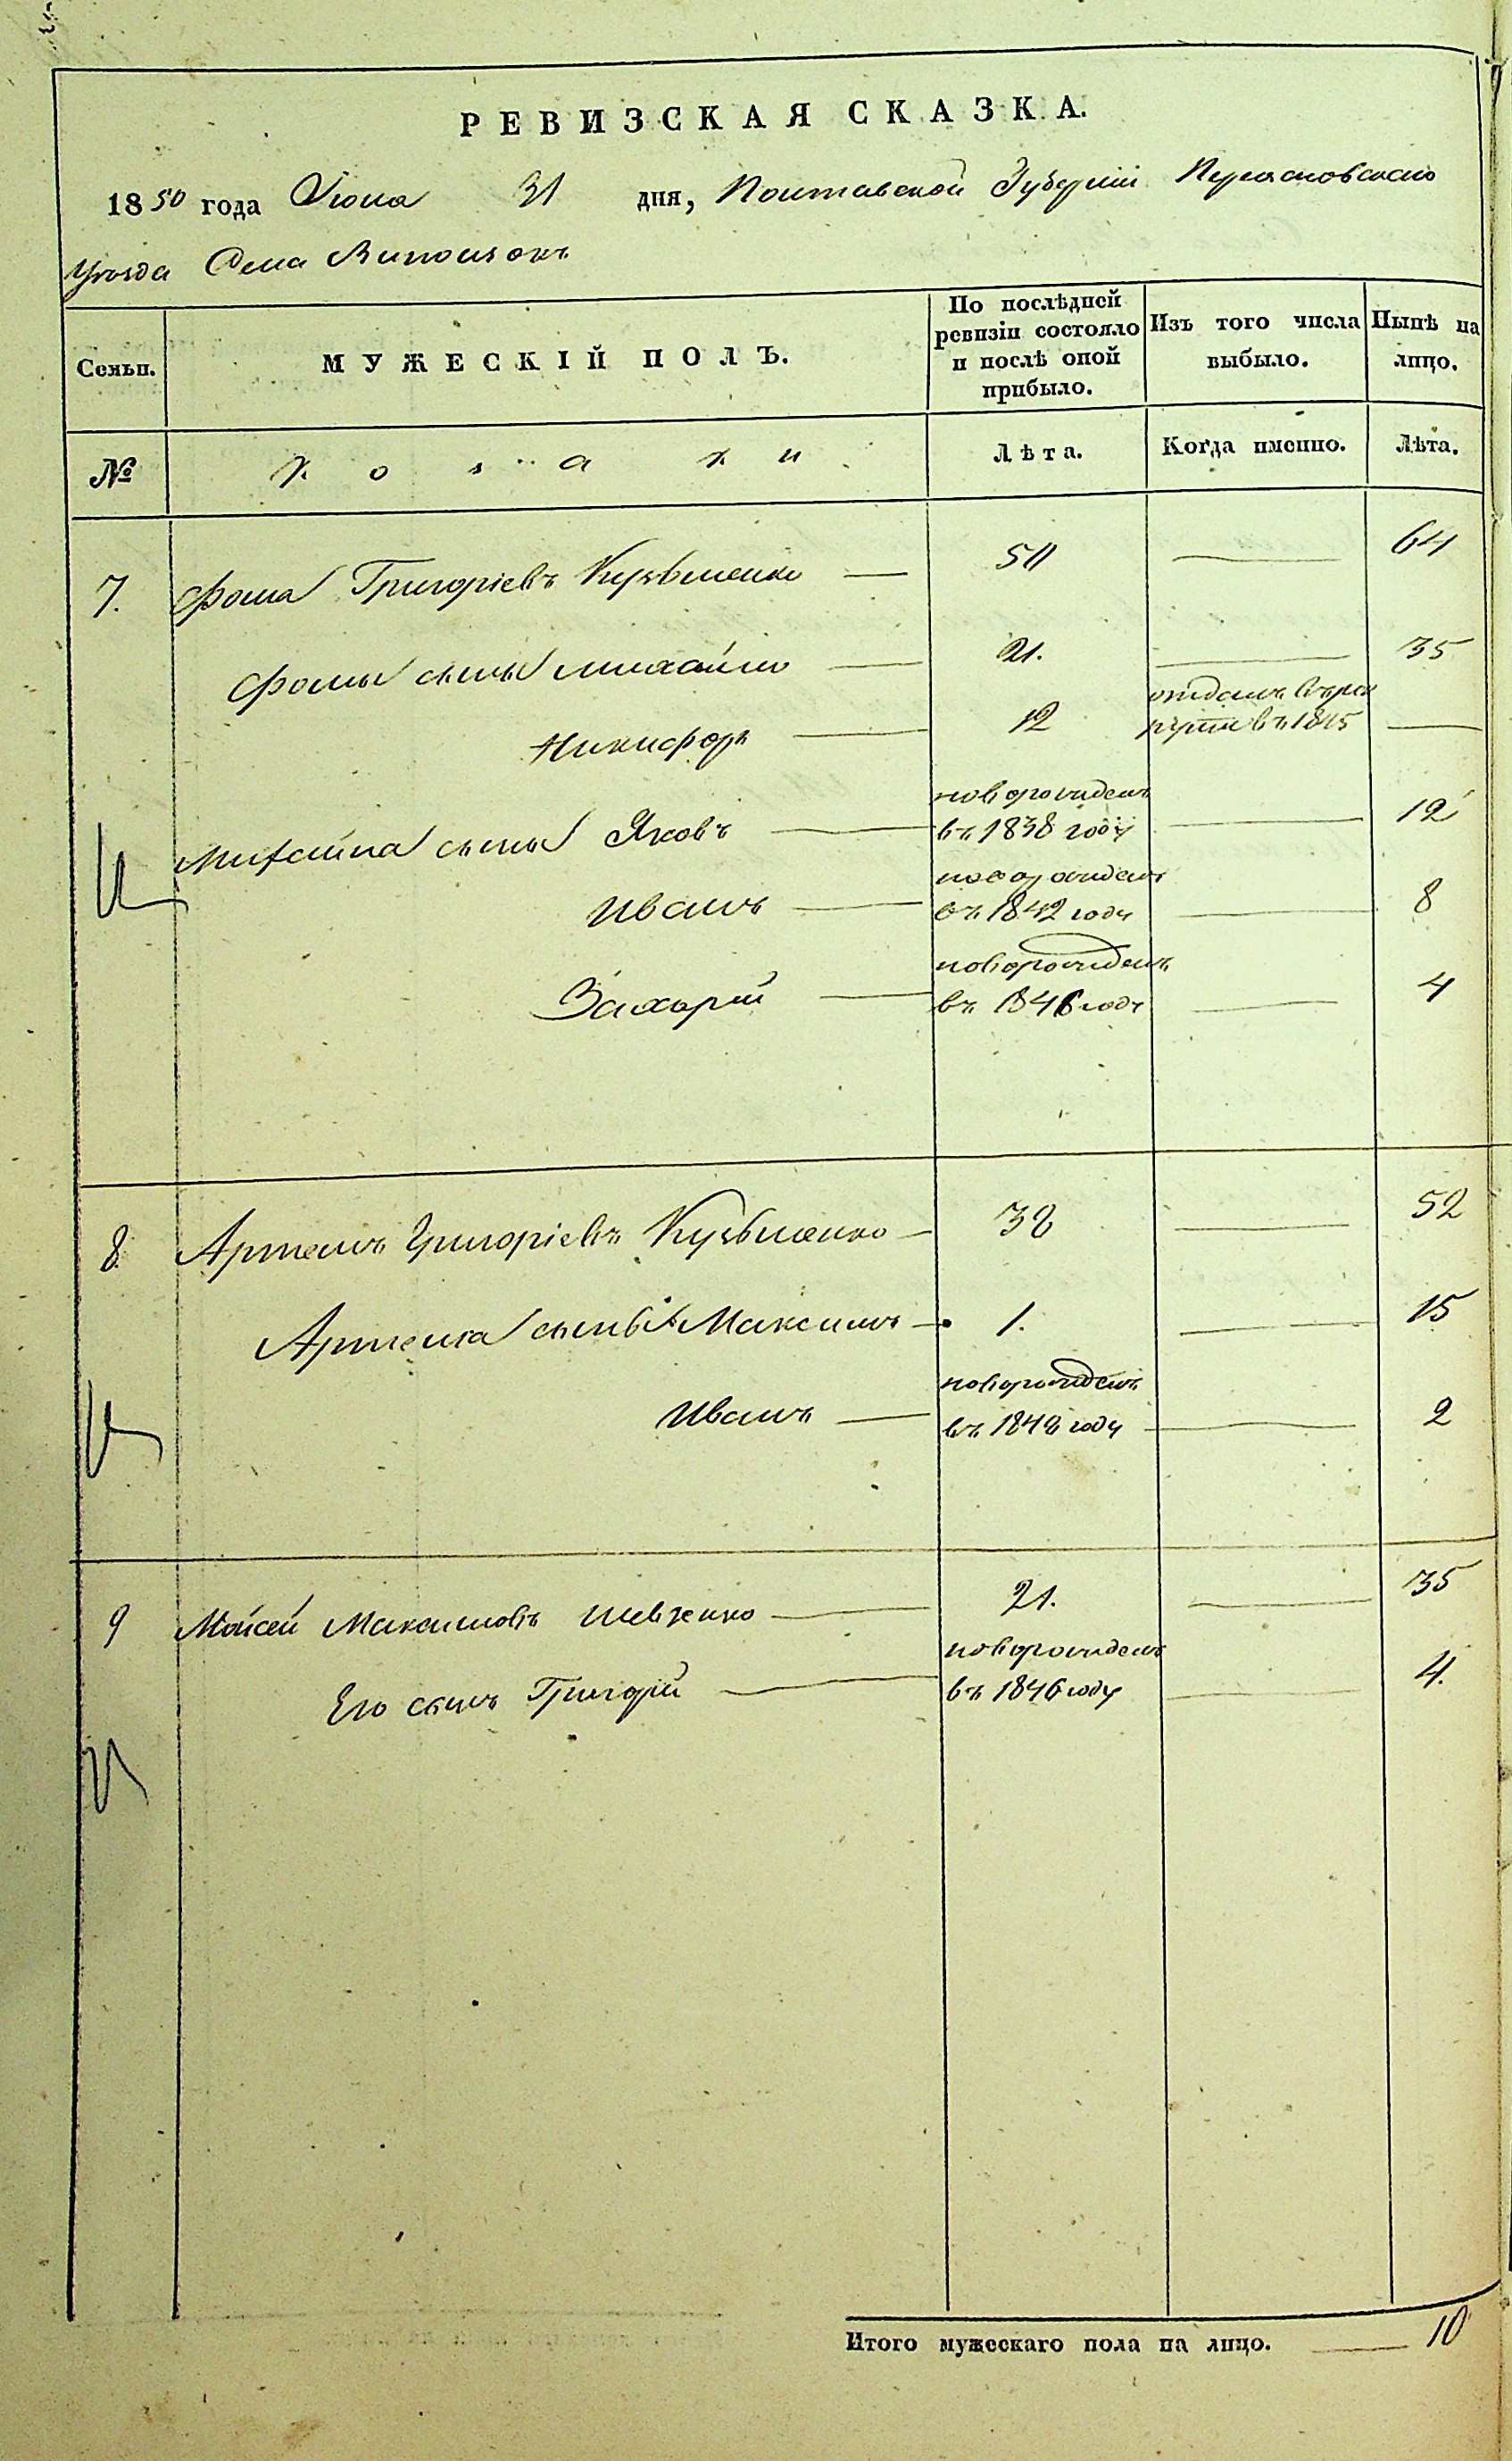 РЕВИЗСКАЯ СКАЗКА.
1850 года Июна 31 дня, Полтавской Губерніи Переясловскаго
Уезда Села Випол
Семьи. МУЖЕСКІЙ ПОЛЪ. По послѣдней ревизіи состояло и послѣ оной прибыло. Изъ того числа выбыло. Нынѣ на лицо.
№ Козаки Лѣта. Когда именно. Лѣта.
7. Фома Григоріевъ Кузьменко — 50 — 64
Фомы сыны Михайло — 21. — 35
Никифоръ — 12 отданъ въ рекруты въ 1845 —
Михайла сыны Яковъ — новорожденъ въ 1838 году — 12
Иванъ — новорожденъ въ 1842 году — 8
Захарій — новорожденъ въ 1846 году — 4
8. Артемъ Григоріевъ Кузьменко — 38 — 52
Артема сыны Максимъ — 1. — 15
Иванъ — новорожденъ въ 1848 году — 2
9 Мойсей Максимовъ Шевченко — 21. — 35
Его сынъ Григорій — новорожденъ въ 1846 году — 4.
Итого мужескаго пола на лицо. — 10